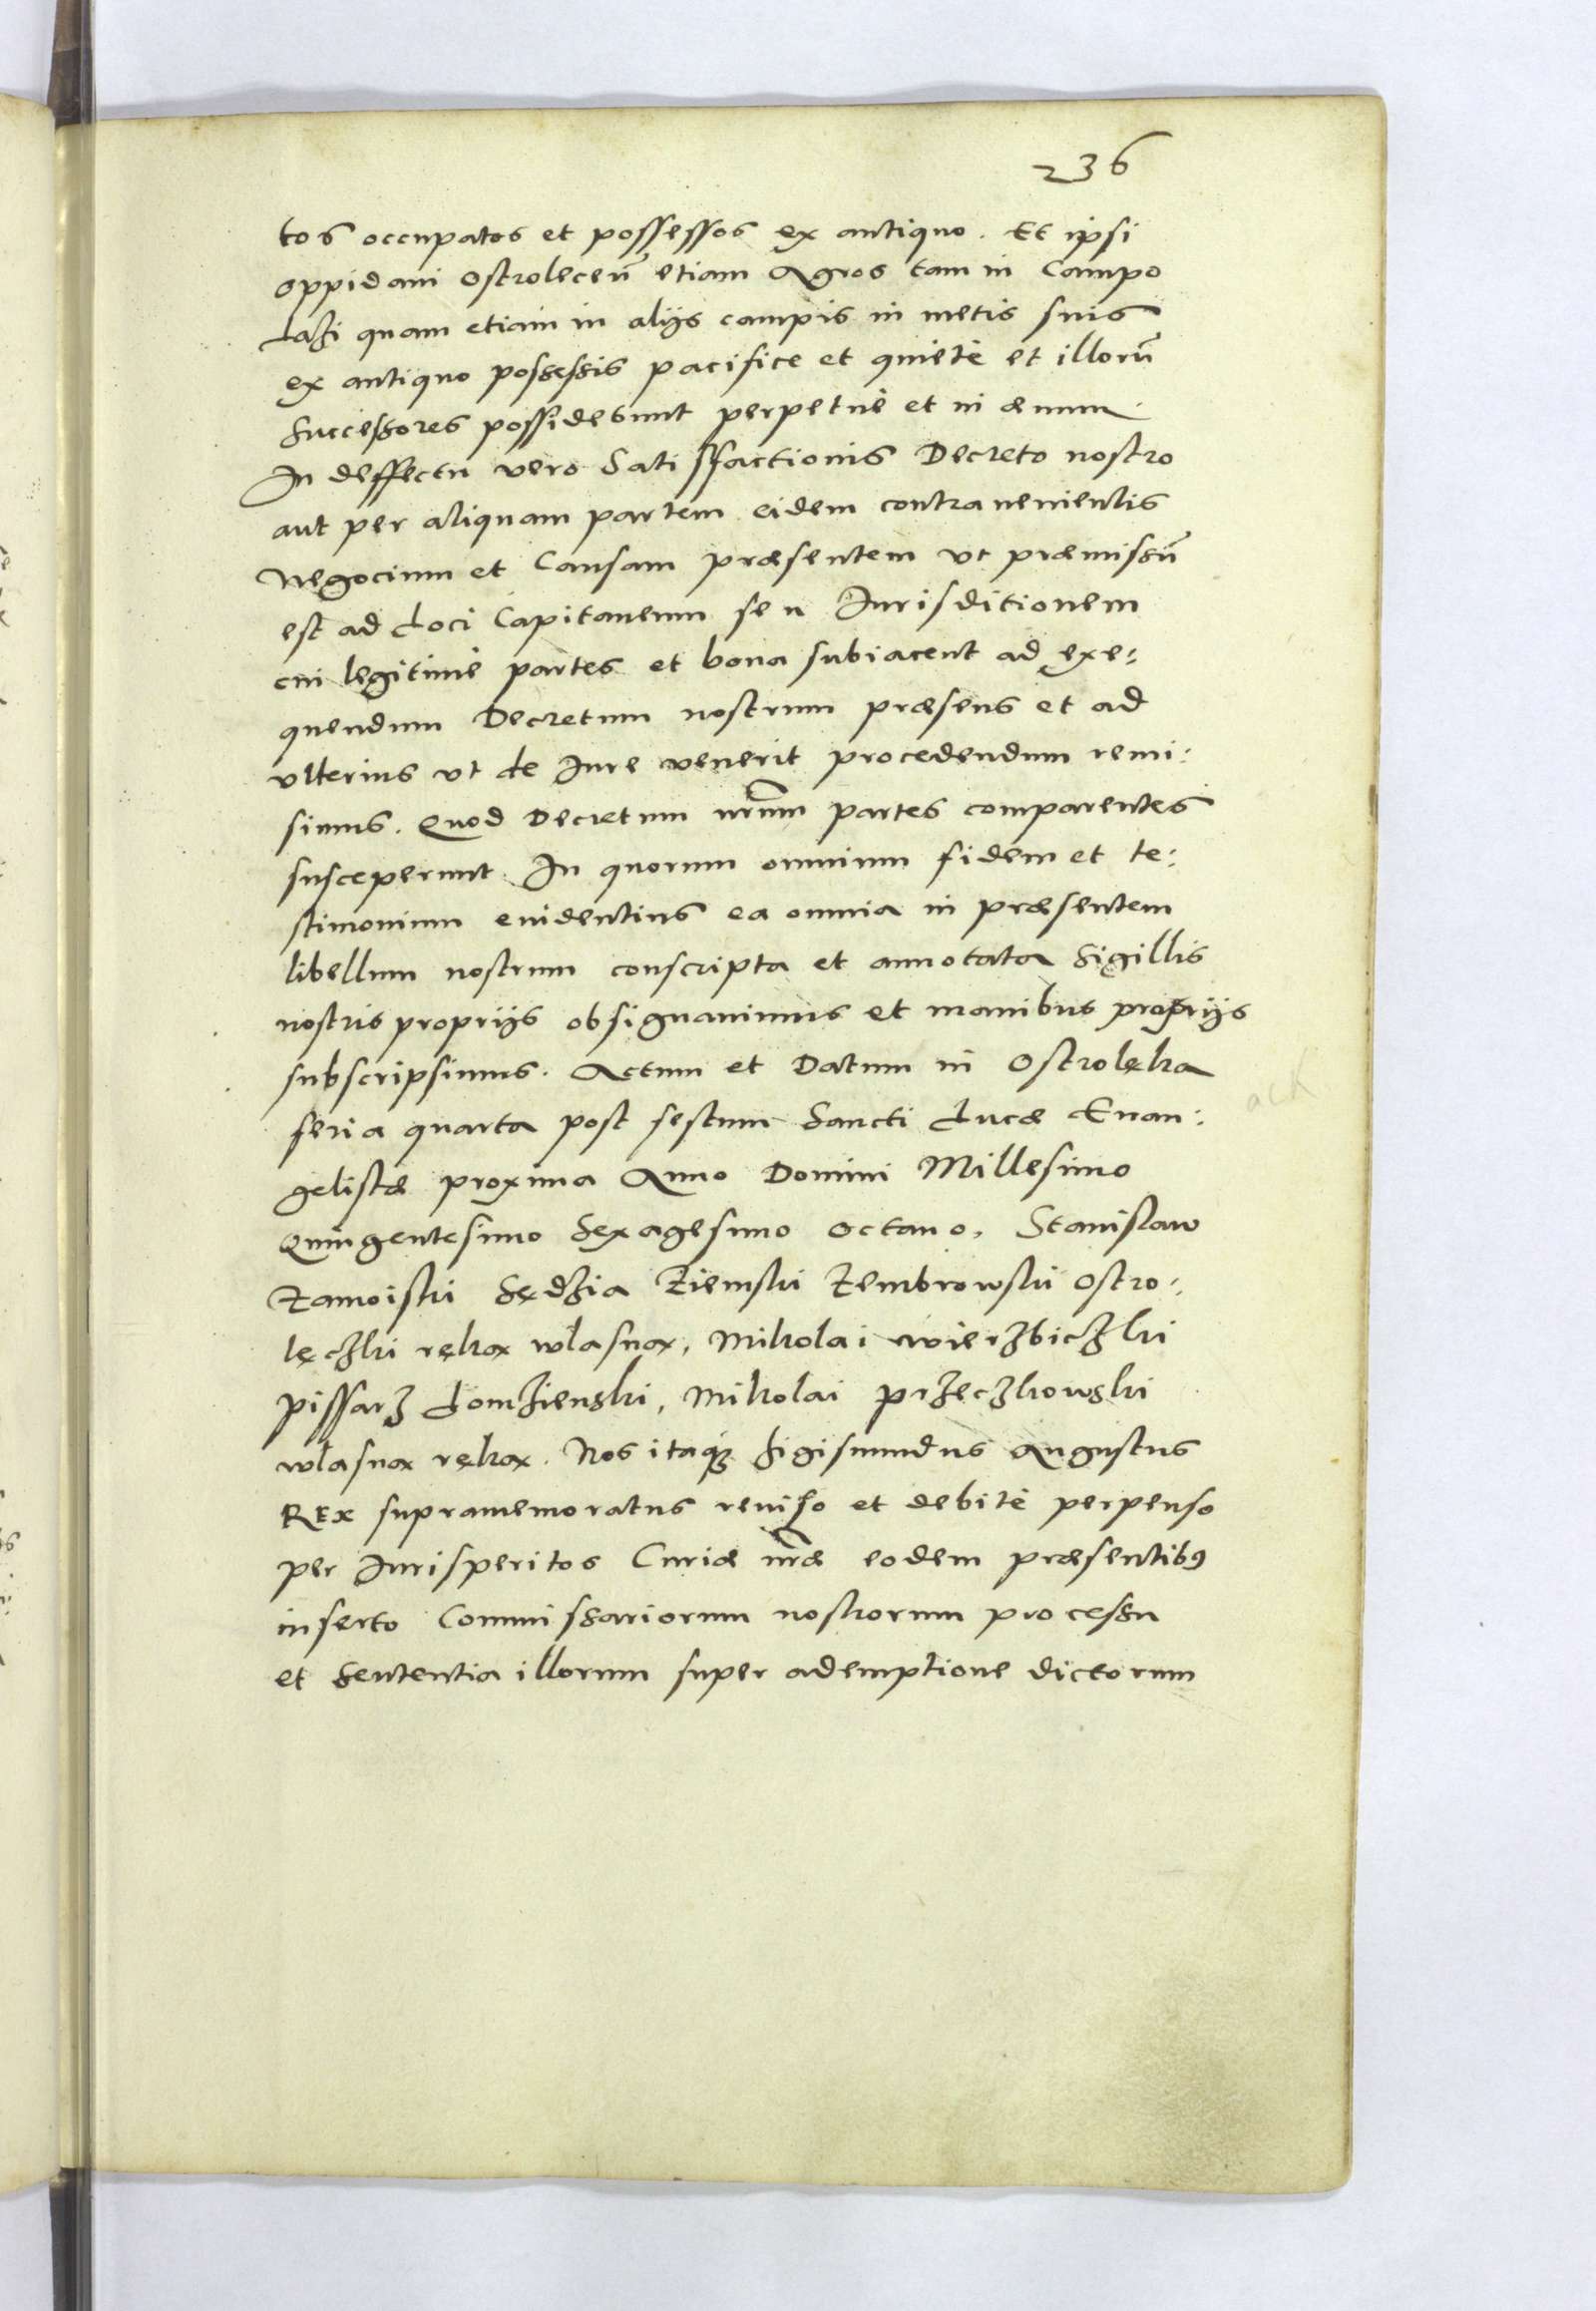 236
tos occupatos et possessos ex antiquo. Et ipsi
oppidani Ostroleceñ etiam Agros tam in Campo
Łazi quam etiam in alijs campis in metis suis
ex antiquo possessis pacificè et quietè et illorũ
Successores possidebunt perpetuè et in æuum
In deffectu vero Satisffactionis Decreto nostro
aut per aliquam partem eidem contrauenientis
Negocium et Causam præsentem vt præmissũ
est ad Loci Capitaneum seu Jurisditionem
cui legitimè partes et bona subiacent ad exe:
quendum Decretum nostrum præsens et ad
vlterius vt de Jure venerit procedendum remi:
simus. Quod Decretum nrũm partes comparentes
susceperunt. In quorum omnium fidem et te:
stimonium euidentius ea omnia in præsentem
libellum nostrum conscripta et annotata Sigillis
nostris proprijs obsignauimus et manibus proprijs
subscripsimus. Actum et Datum in Ostrolęka
feria quarta post festum Sancti Lucæ Euan:
gelistæ proxima Anno Domini Millesimo
Quingentesimo Sexagesimo Octauo. Stanislaw
Zamoiski Sędzia Ziemski Zembrowski Ostro:
lęczki ręką wlasną, Mikolai Wierzbiczki
pissarz Łomzienski, Mikolai przeczkowski
wlasną ręką. Nos itaq₃ Sigismundus Augustus
REx supramemoratus reuiso et debitè perpenso
per Jurisperitos Curiæ nr̃æ eodem præsentibꝰ
inserto Commissariorum nostrorum processu
et Sententia illorum super ademptione dictorum